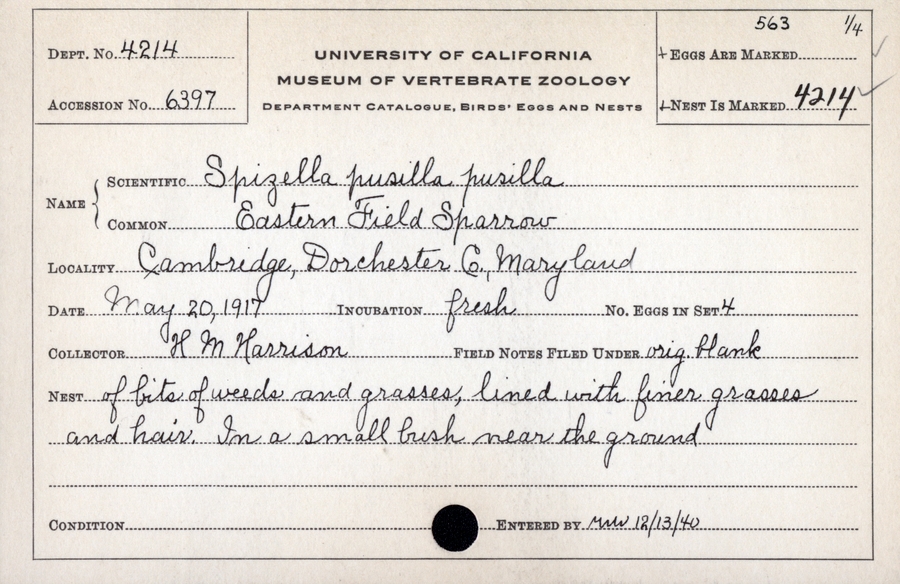 563 1/4
DEPT. No. 4214
UNIVERSITY OF CALIFORNIA
EGGS ARE MARKED
MUSEUM OF VERTEBRATE ZOOLOGY
ACCESSION No. 6397
DEPARTMENT CATALOGUE, BIRDS' EGGS AND NESTS
NEST IS MARKED 4214
NAME
SCIENTIFIC Spizella pusilla pusilla
COMMON Eastern Field Sparrow
LOCALITY Cambridge, Dorchester Co., Maryland
DATE May 20, 1917 INCUBATION fresh No. EGGS IN SET 4
COLLECTOR H M Harrison FIELD NOTES FILED UNDER orig. blank
NEST of bits of weeds and grasses, lined with finer grasses
and hair. In a small bush near the ground
CONDITION ENTERED BY 12/13/40